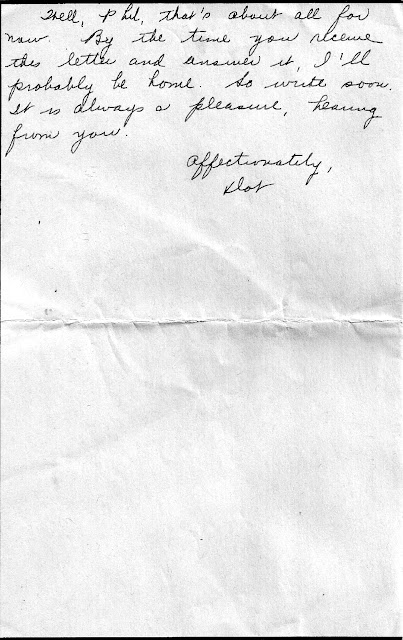 Well, Phil, that's about all for
now. By the time you receive
this letter and answer it, I'll
probably be home. So write soon.
It is always a pleasure, hearing
from you.
Affectionately,
Dot